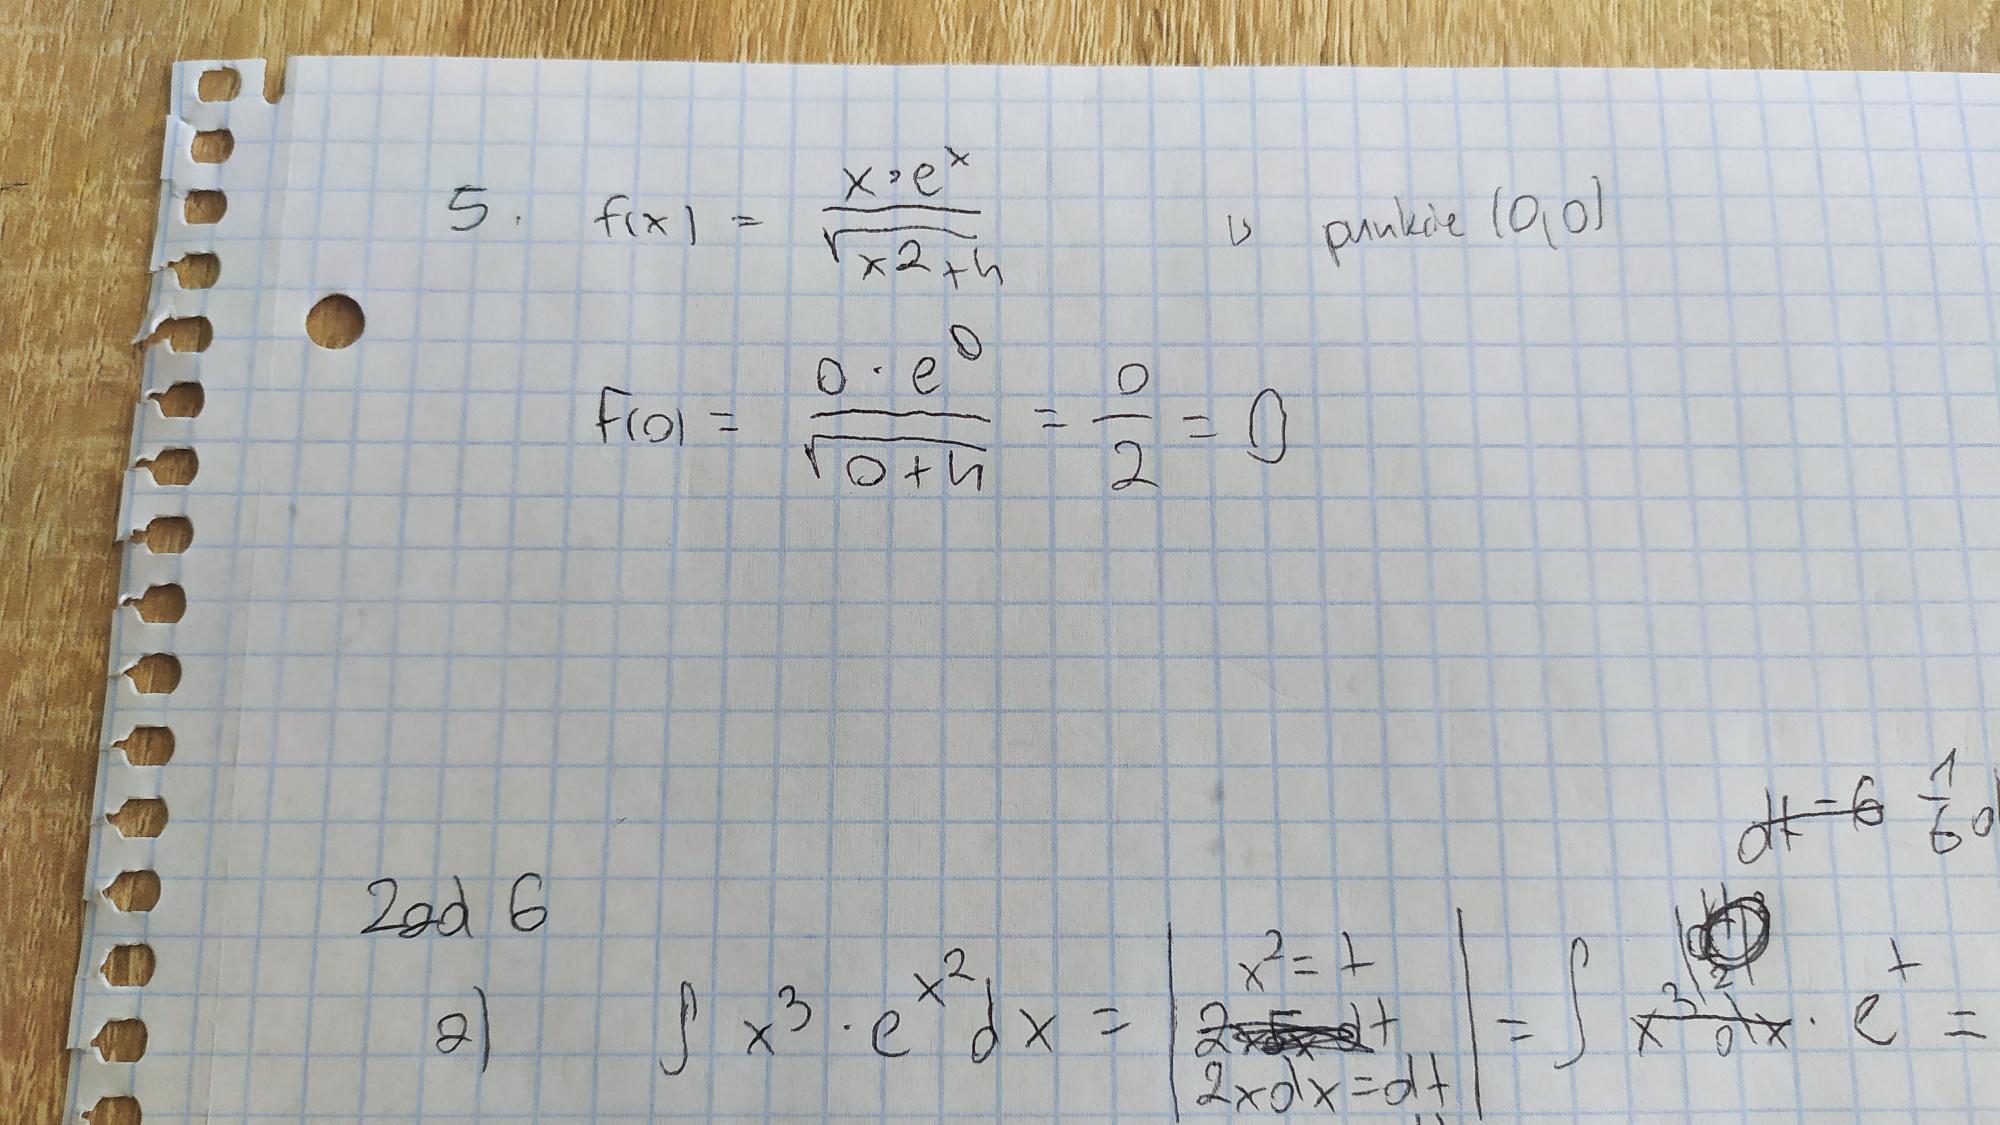 5. f(x) = x·e^x / √x2+4 w punkcie (0,0)
f(0) = 0·e^0 / √0+4 = 0/2 = 0
dt = 6 1/6 d
Zad 6
a) ∫ x^3 · e^x^2 dx = | x^2 = t
2xdx = dt | = ∫ x^3 dx · e^t =